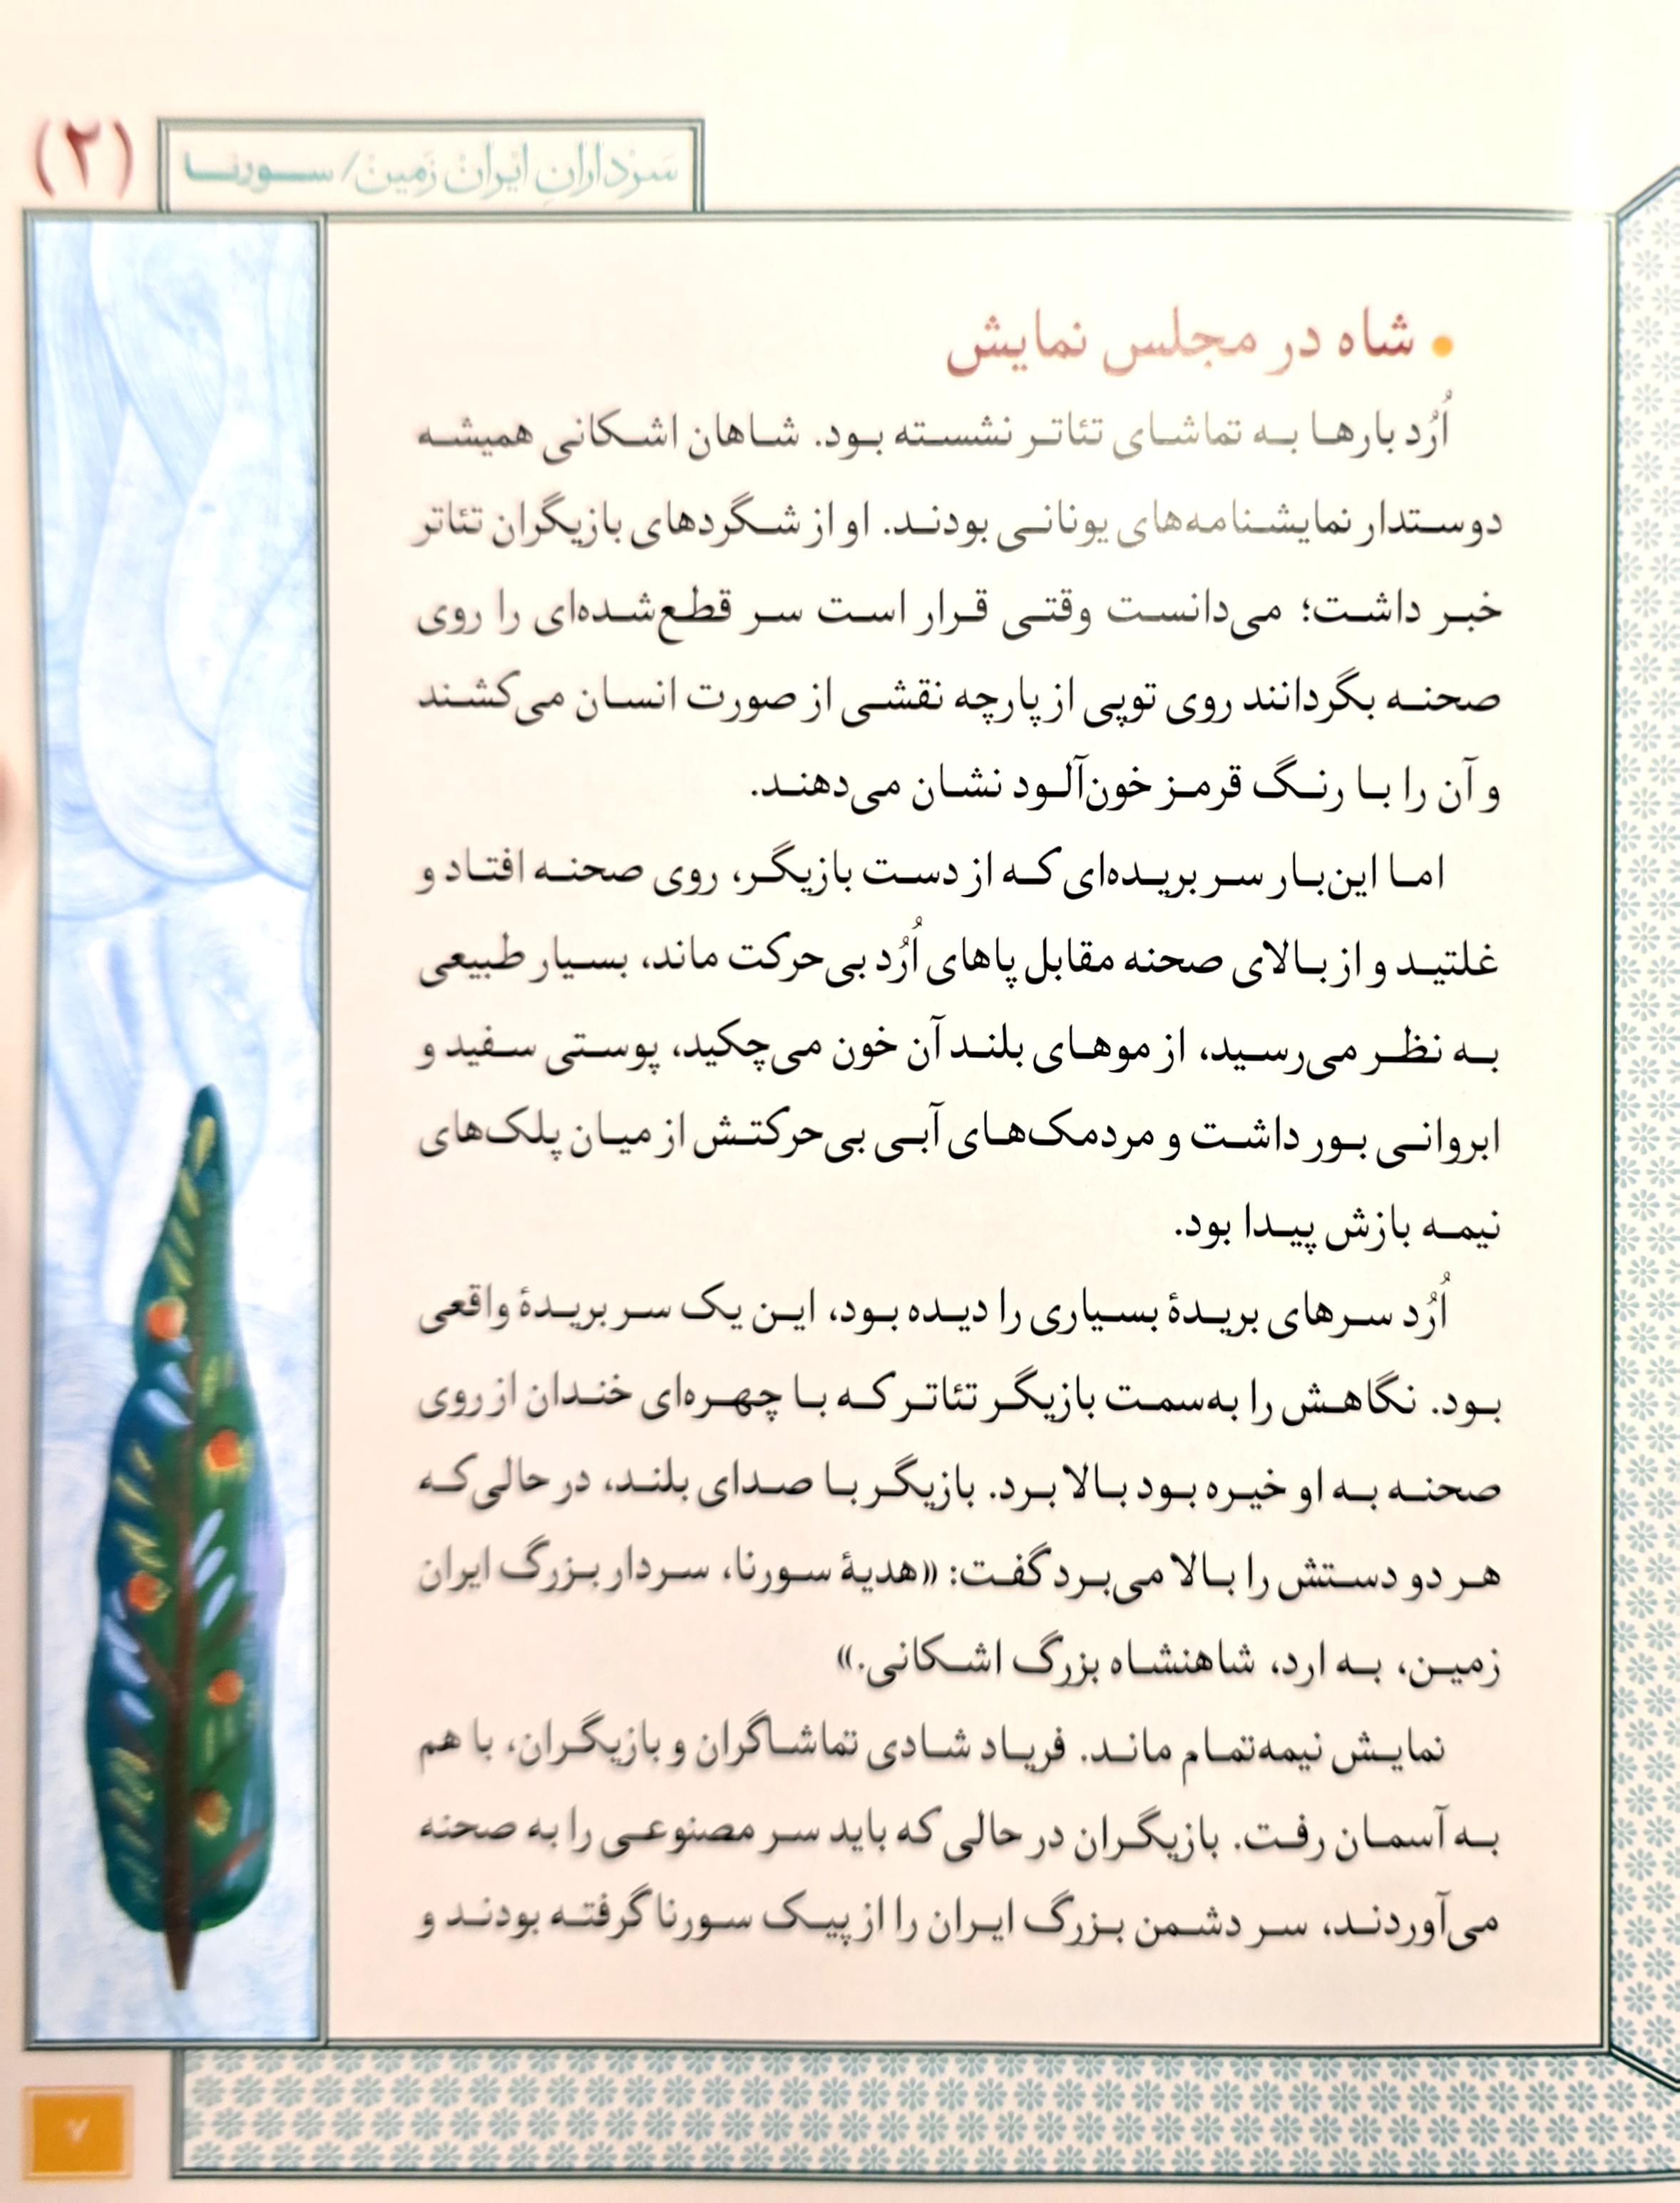 سَرْدارانِ ایْرانْ زَمینْ/ سورنا
(۲)
• شاه در مجلس نمایش
اُرُد بارها به تماشای تئاتر نشسته بود. شاهان اشکانی همیشه
دوستدار نمایشنامه‌های یونانی بودند. او از شگردهای بازیگران تئاتر
خبر داشت؛ می‌دانست وقتی قرار است سر قطع‌شده‌ای را روی
صحنه بگردانند روی توپی از پارچه نقشی از صورت انسان می‌کشند
و آن را با رنگ قرمز خون‌آلود نشان می‌دهند.
اما این‌بار سر بریده‌ای که از دست بازیگر، روی صحنه افتاد و
غلتید و از بالای صحنه مقابل پاهای اُرُد بی‌حرکت ماند، بسیار طبیعی
به نظر می‌رسید، از موهای بلند آن خون می‌چکید، پوستی سفید و
ابروانی بور داشت و مردمک‌های آبی بی‌حرکتش از میان پلک‌های
نیمه بازش پیدا بود.
اُرُد سرهای بریدهٔ بسیاری را دیده بود، این یک سر بریدهٔ واقعی
بود. نگاهش را به‌سمت بازیگر تئاتر که با چهره‌ای خندان از روی
صحنه به او خیره بود بالا برد. بازیگر با صدای بلند، در حالی‌که
هر دو دستش را بالا می‌برد گفت: «هدیهٔ سورنا، سردار بزرگ ایران
زمین، به ارد، شاهنشاه بزرگ اشکانی.»
نمایش نیمه‌تمام ماند. فریاد شادی تماشاگران و بازیگران، با هم
به آسمان رفت. بازیگران در حالی که باید سر مصنوعی را به صحنه
می‌آوردند، سر دشمن بزرگ ایران را از پیک سورنا گرفته بودند و
۷